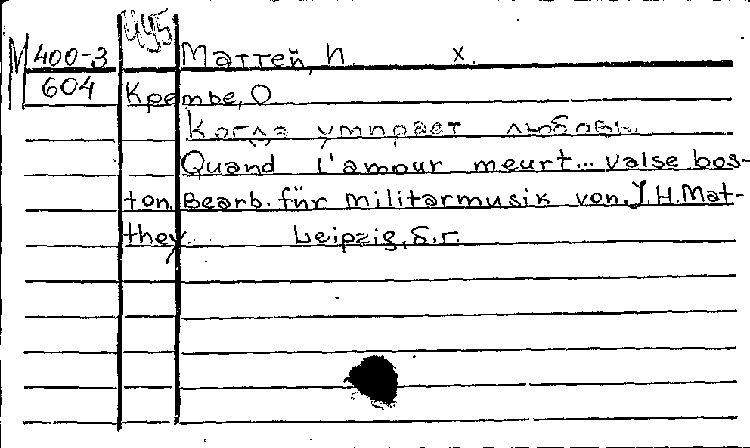 М 400-3 Маттей, И. х.
604 Крембе, О
Когда умирает любовь.
Quand l'amour meurt... valse bos-
ton. Bearb. für Militärmusik von. J. H. Mat-
they. Leipzig, б.г.